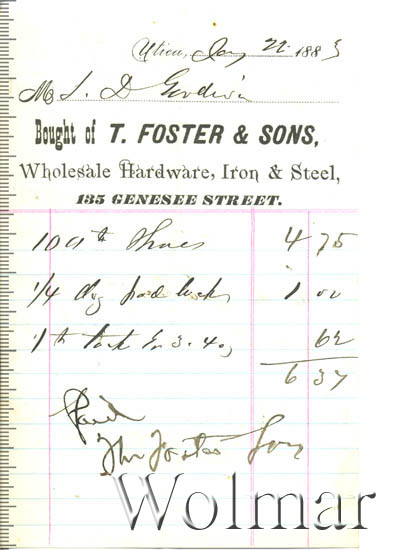 Utica, Jany 22 1883
M S. D Goodwin
Bought of T. FOSTER & SONS,
Wholesale Hardware, Iron & Steel,
135 GENESEE STREET.
100 lb Shoes 4 75
1/4 doz 1 00
1 62
6 37
Paid
Thos Foster Sons
Wolmar